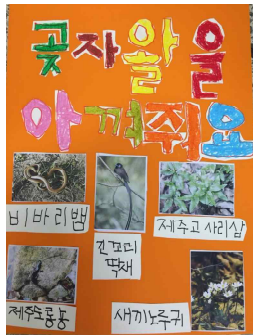 곶자왈을
아껴줘요
비바리뱀
긴꼬리
딱새
제주고사리삼
제주도롱뇽
새끼노루귀